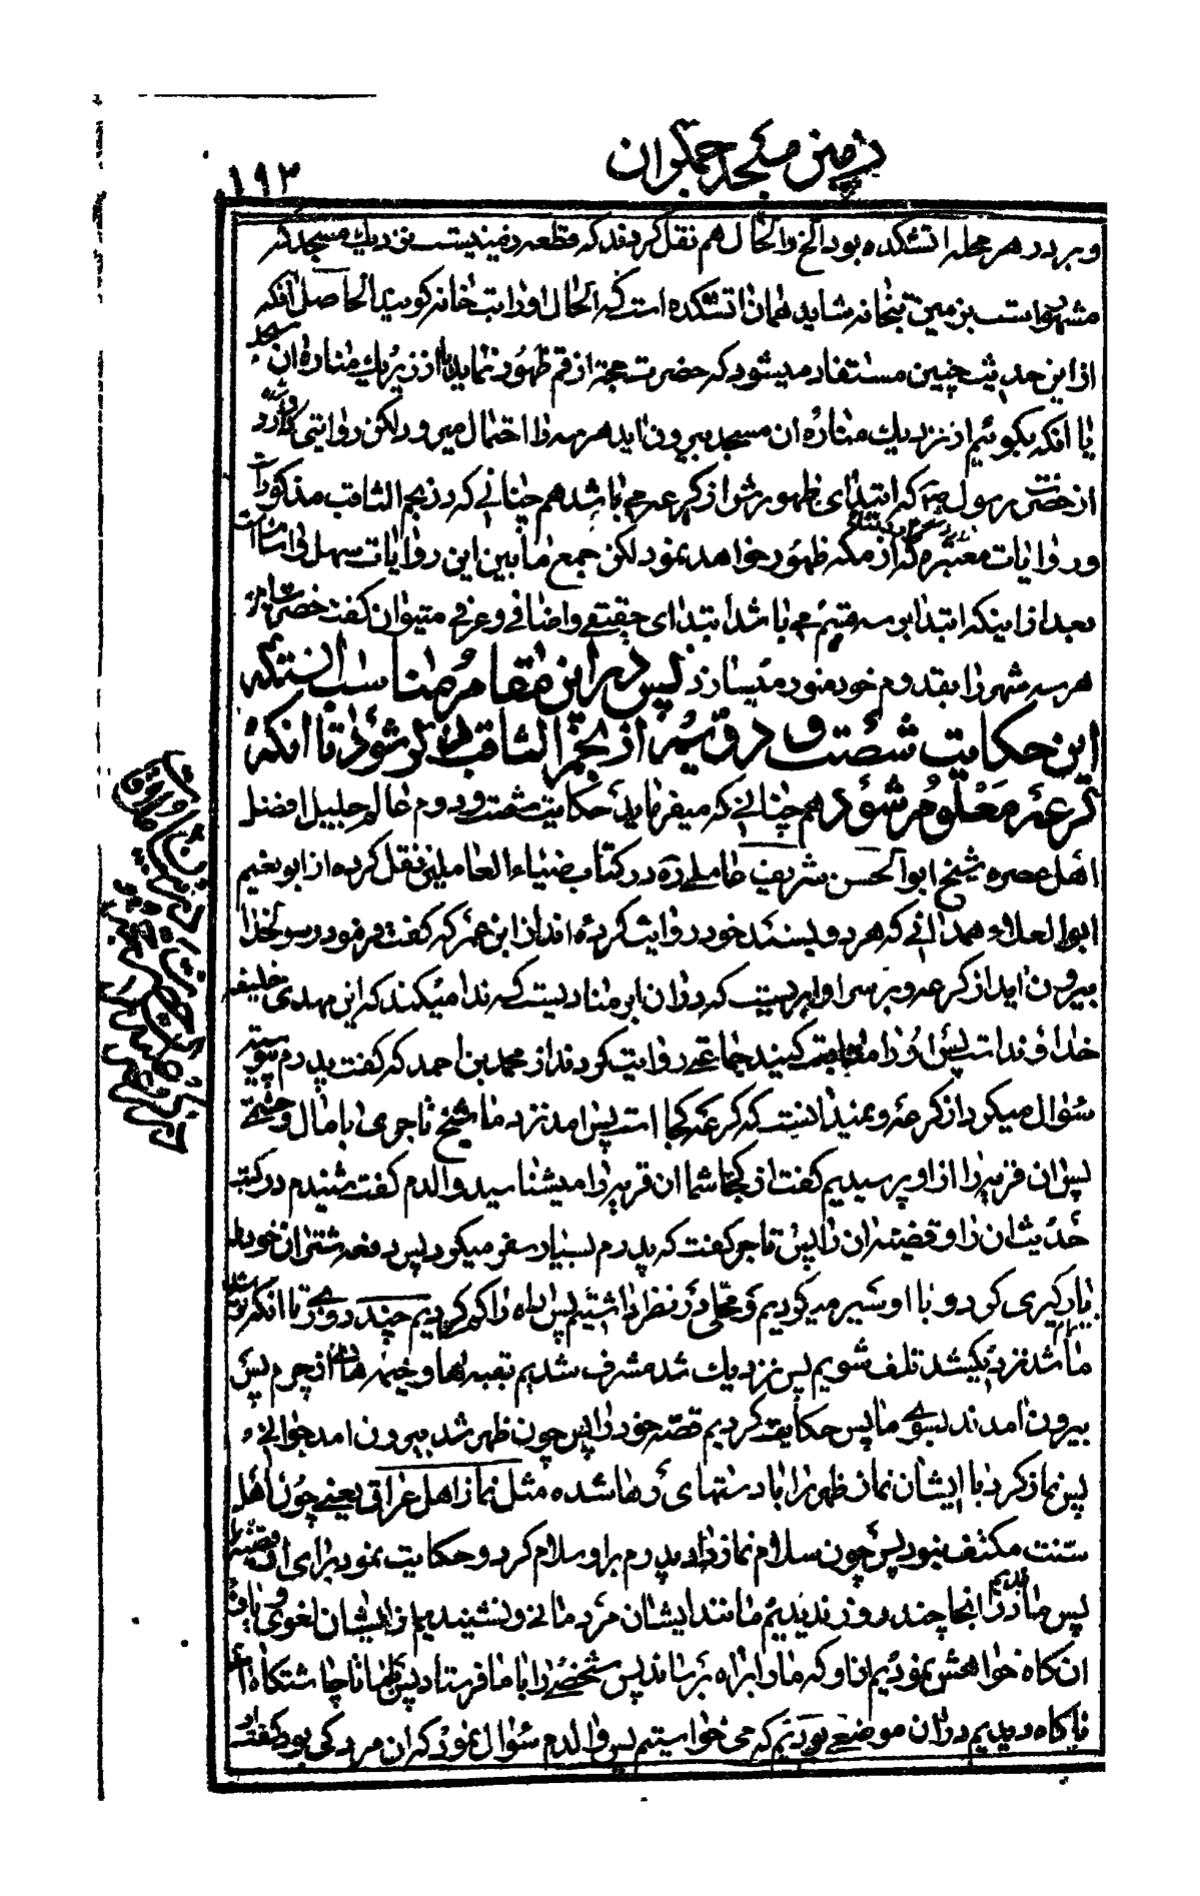 در زمین مسجد جمکران
۱۹۳
و بر در هر محله اتشکده بود الخ و الحال هم نقل کردند که قطعه زمینیست نزدیک مسجد که
مشهور است بزمین بتخانه شاید همان اتشکده است که الحال او را بت خانه کویند الحاصل انکه
از این حدیث چنین مستفاد میشود که حضرت حجة از قم ظهور نماید یا از نزدیک مناره ان مسجد
یا انکه بکوئیم از نزدیک مناره ان مسجد بیرون اید هر سه را احتمال میرود لکن روایتی که وارد شده
از حضرت رسول که ابتدای ظهورش از کرعه می باشد هم چنانی که در نجم الثاقب مذکور است
و روایات معتبره که از مکه ظهور خواهد نمود لکن جمع ما بین این روایات سهل و اسان است
بعد از اینکه ابتدا بر سه قسم می باشد ابتدای حقیقی و اضافی و عرفی میتوان کفت حضرت
هر سه شهر را بقدوم خود منور میسازد پس در این مقام مناسب انستکه
این حکایت شصت و دویم از نجم الثاقب ذکر شود تا انکه
کرعه معلوم شود هم چنانی که میفرماید حکایت شصت و دوم عالم جلیل افضل
اهل عصره شیخ ابو الحسن شریف عاملی ره در کتاب ضیاء العاملین نقل کرده از ابو نعیم
ابو العلاء همدانی که هر دو بسند خود روایت کرده اند از ابن عمر که کفت فرمود رسولخدا
بیرون اید از کرعه و بر سر او ابریست که در ان ابر منادیست که ندا میکند که این مهدی خلیفه
خداوند است پس او را متابعت کنید جماعتی روایت کردند از محمد بن احمد که کفت پدرم پیوسته
سؤال میکرد از کرعه و نمیدانست که کرعه کجا است پس امد نزد ما شیخ تاجری با مال و حشمی
پس ان قریه را از او پرسیدیم کفت از کجا شما ان قریه را میشناسید والدم کفت شنیدم در کتب
حدیث ان را و قضیه ان را پس تاجر کفت که پدرم بسیار سفر میکرد پس دفعه شتران خود را
بارکیری کرد و با او سیر میکردیم و محلی در نظر داشتیم پس راه را کم کردیم چند روزی تا انکه توشه
ما تمام شد نزدیکشد تلف شویم پس نزدیک شد مشرف شدیم بقبه ها و خیمه هائی از چرم پس
بیرون امدند بسوی ما پس حکایت کردیم قصه خود را پس چون ظهر شد بیرون امد جوانی
پس نماز کرد با ایشان نماز ظهر را با دستهای رها شده مثل نماز اهل عراق یعنی چون اهل
سنت مکتف نبود پس چون سلام نماز داد پدرم بر او سلام کرد و حکایت نمود برای او قصه
پس ماندیم در انجا چند روز ندیدیم مانند ایشان مردمانی و نشنیدیم از ایشان لغوی و
ان کاه خواهش نمودیم از او که ما را براه برساند پس شخصی را با ما فرستاد پس تا چاشتکاه
ناکاه دیدیم در ان موضعی بودیم که می خواستیم پس والدم سؤال نمود که ان مرد کی بود کفت